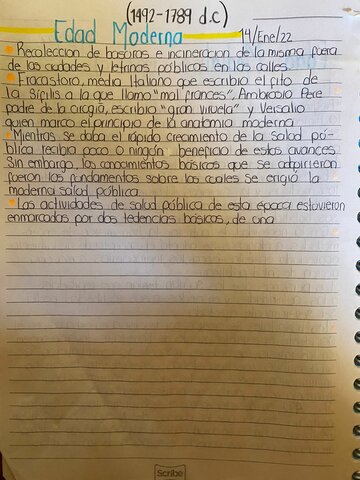 (1492-1789 d.c)
Edad Moderna 14/Ene/22
Recoleccion de basoras e incineracion de la misma fuera
de las ciudades y letrinas públicas en las calles.
Fracastoro, média Italiano que escribio el fito de
la Sífilis a la que llamo "mal frances", Ambrosio Pere
padre de la cirugía, escribia "gran viruela" y Versalio
quien marco el principio de la anatomia moderna.
Mientras se daba el rápido crecimiento de la salud pú-
blica recibia poco o ningún beneficio de estos avances.
Sin embargo, los conocimientos básicos que se adquirieron
fueron los fundamentos sobre los cuales se erigió la
moderna salud pública.
Las actividades de salud pública de esta época estuvieron
enmarcadas por dos tedencias básicas, de una
Scribe